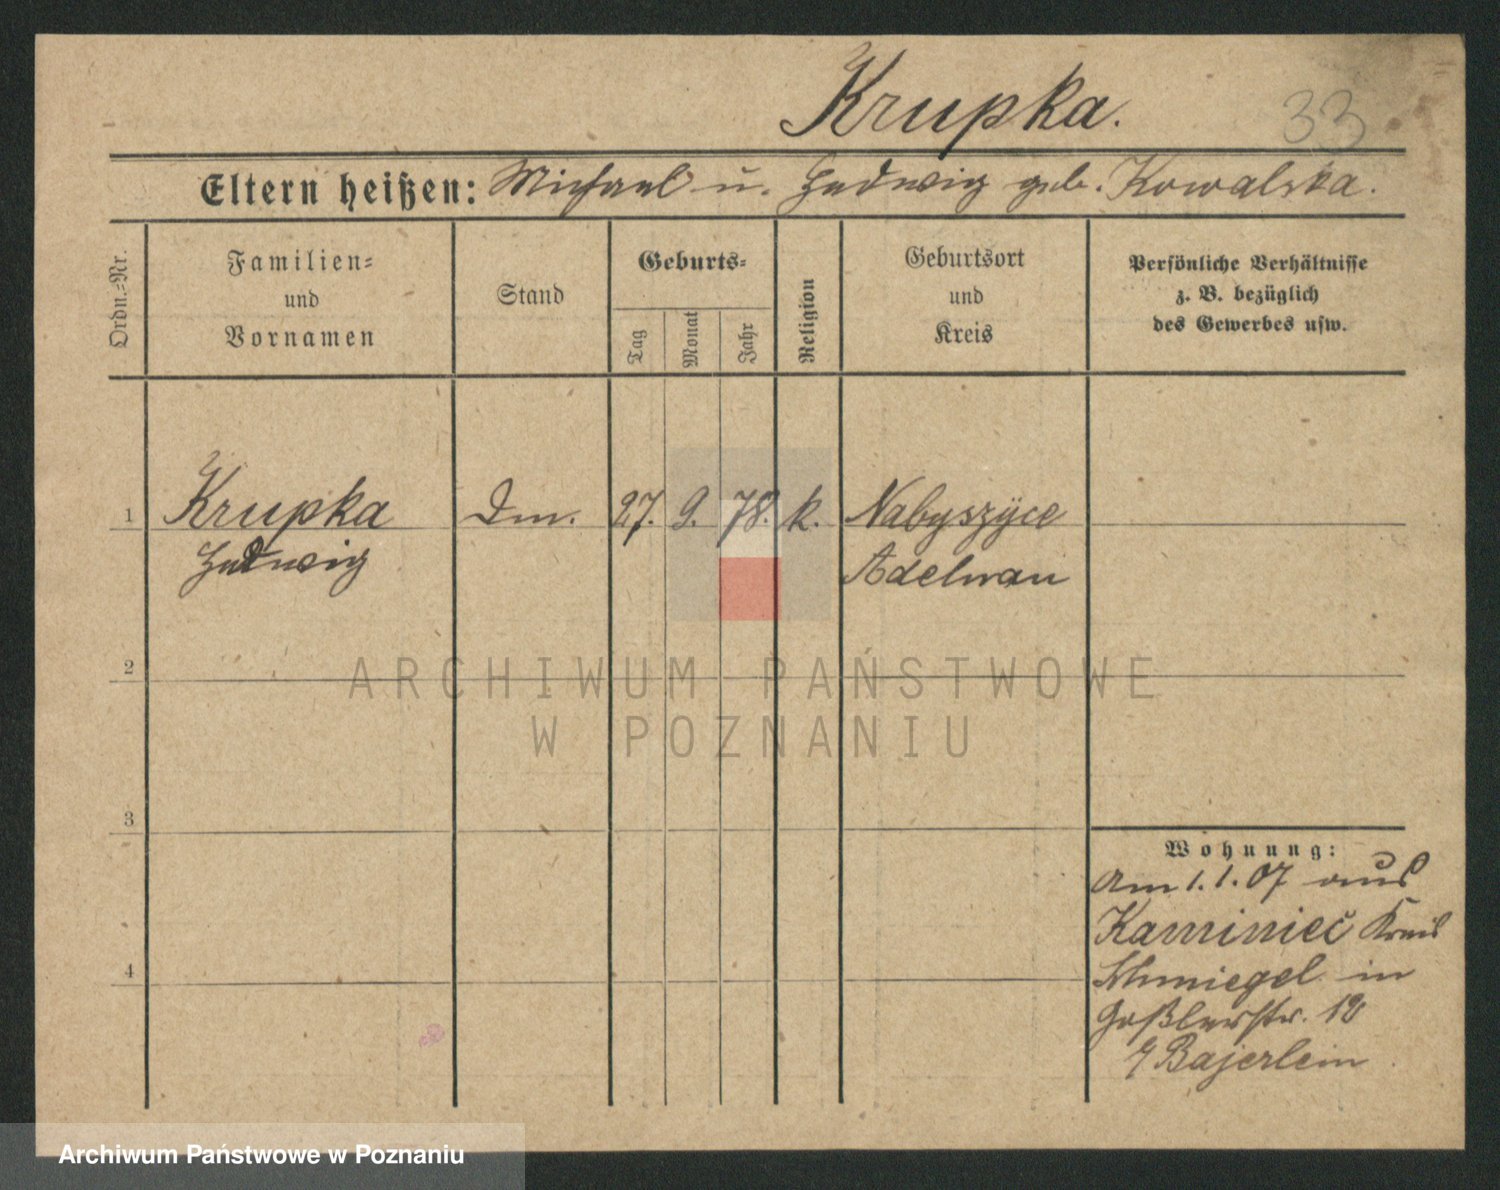 Krupka.
33
Eltern heißen: Michael u. Hedwig geb. Kowalska.
Ordn.-Nr.
Familien-
und
Vornamen
Stand
Geburts-
Tag
Monat
Jahr
Religion
Geburtsort
und
Kreis
Persönliche Verhältnisse
z. B. bezüglich
des Gewerbes usw.
1 Krupka Dm. 27. 9. 78. k. Nabyszyce
Hedwig Adelnau
2
ARCHIWUM PAŃSTWOWE
W POZNANIU
3
Wohnung:
am 1.1.07 aus
Kaminiec Kreis
4
Schmiegel in
Goßlerstr. 12
b/ Bajerlein
Archiwum Państwowe w Poznaniu